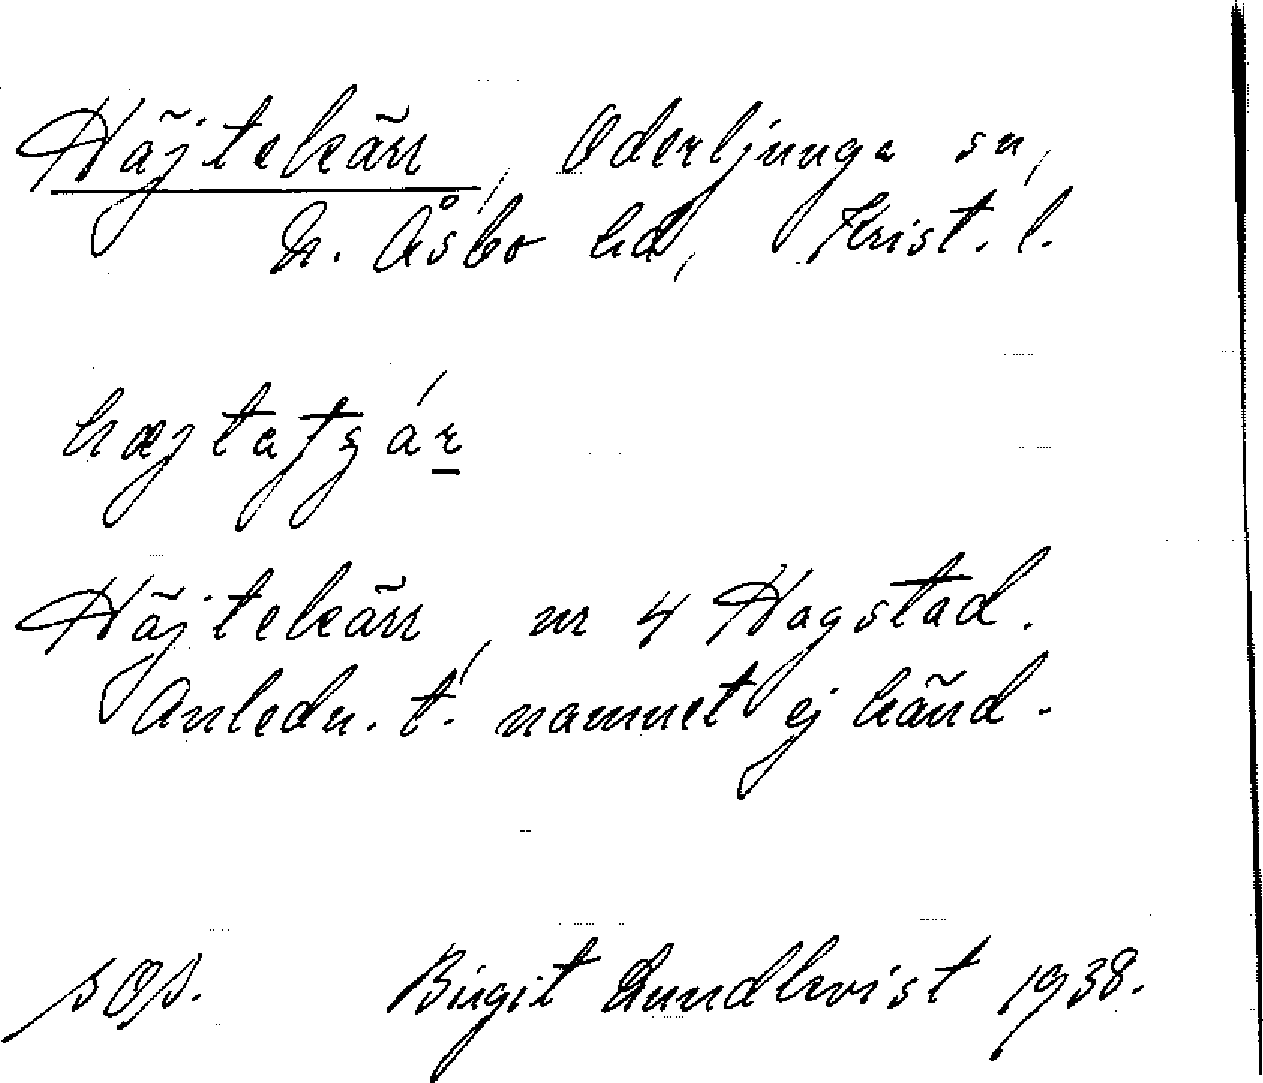 Häjtekärr, Oderljunga sn,
N. Åsbo hd, Krist. l.
Häjtekärr, nr 4 Hagstad.
Anledn. t. namnet ej känd.
sOs. Birgit Lundkvist 1938.